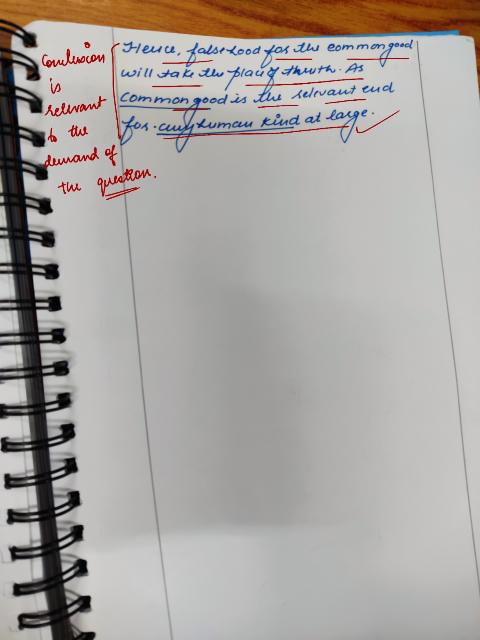 Conclusion
is
relevant
to the
demand of
the question.
Hence, falsehood for the common good
will take the place of thruth. As
common good is the relevant end
for any human kind at large.